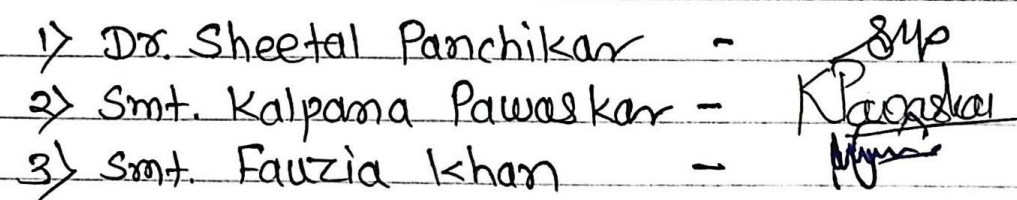 1) Dr. Sheetal Panchikar -
2) Smt. Kalpana Pawaskar - KPawaskar
3) Smt. Fauzia Khan -